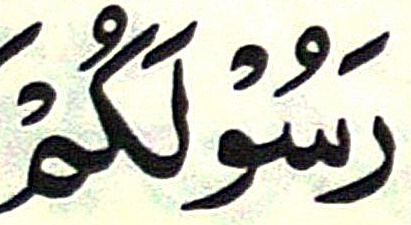 رَسُوْلَكُمْ